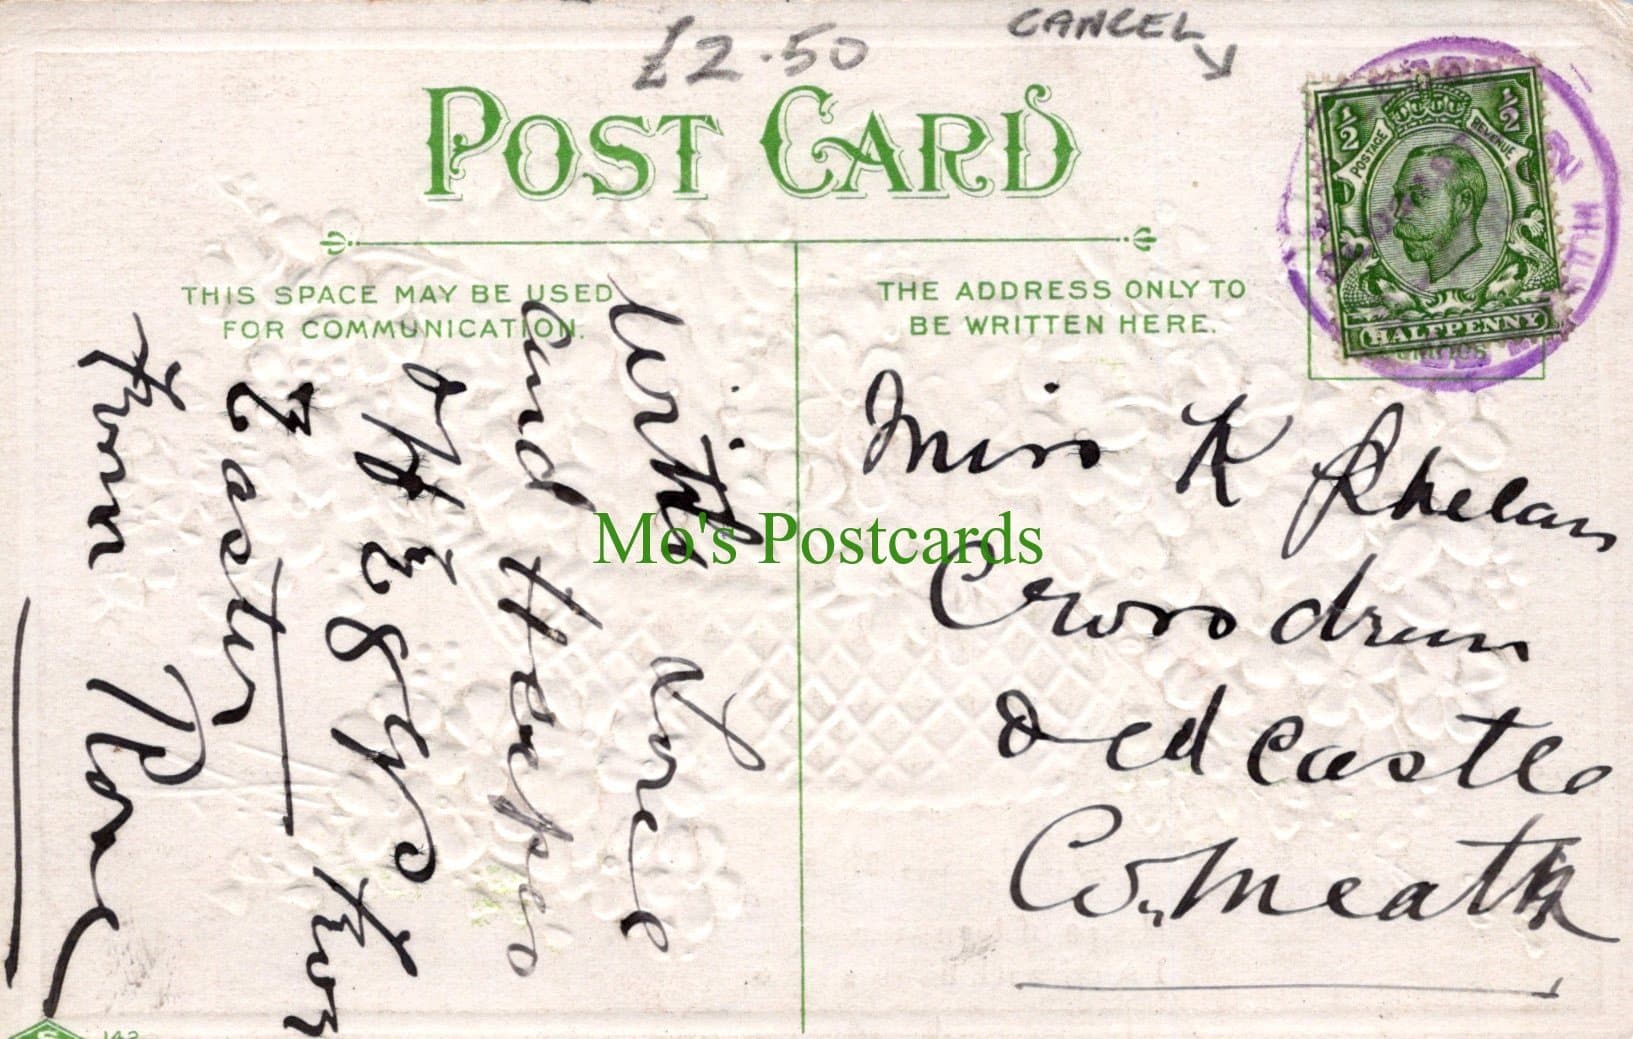 £2.50
CANCEL
POST CARD
½ ½
POSTAGE REVENUE
HALFPENNY
THIS SPACE MAY BE USED
FOR COMMUNICATION.
THE ADDRESS ONLY TO
BE WRITTEN HERE.
With Love
and Heaps
of
for
Easter
From Rose
Miss K Phelan
Crossdrum
Oldcastle
Co. Meath
Mo's Postcards
S
142